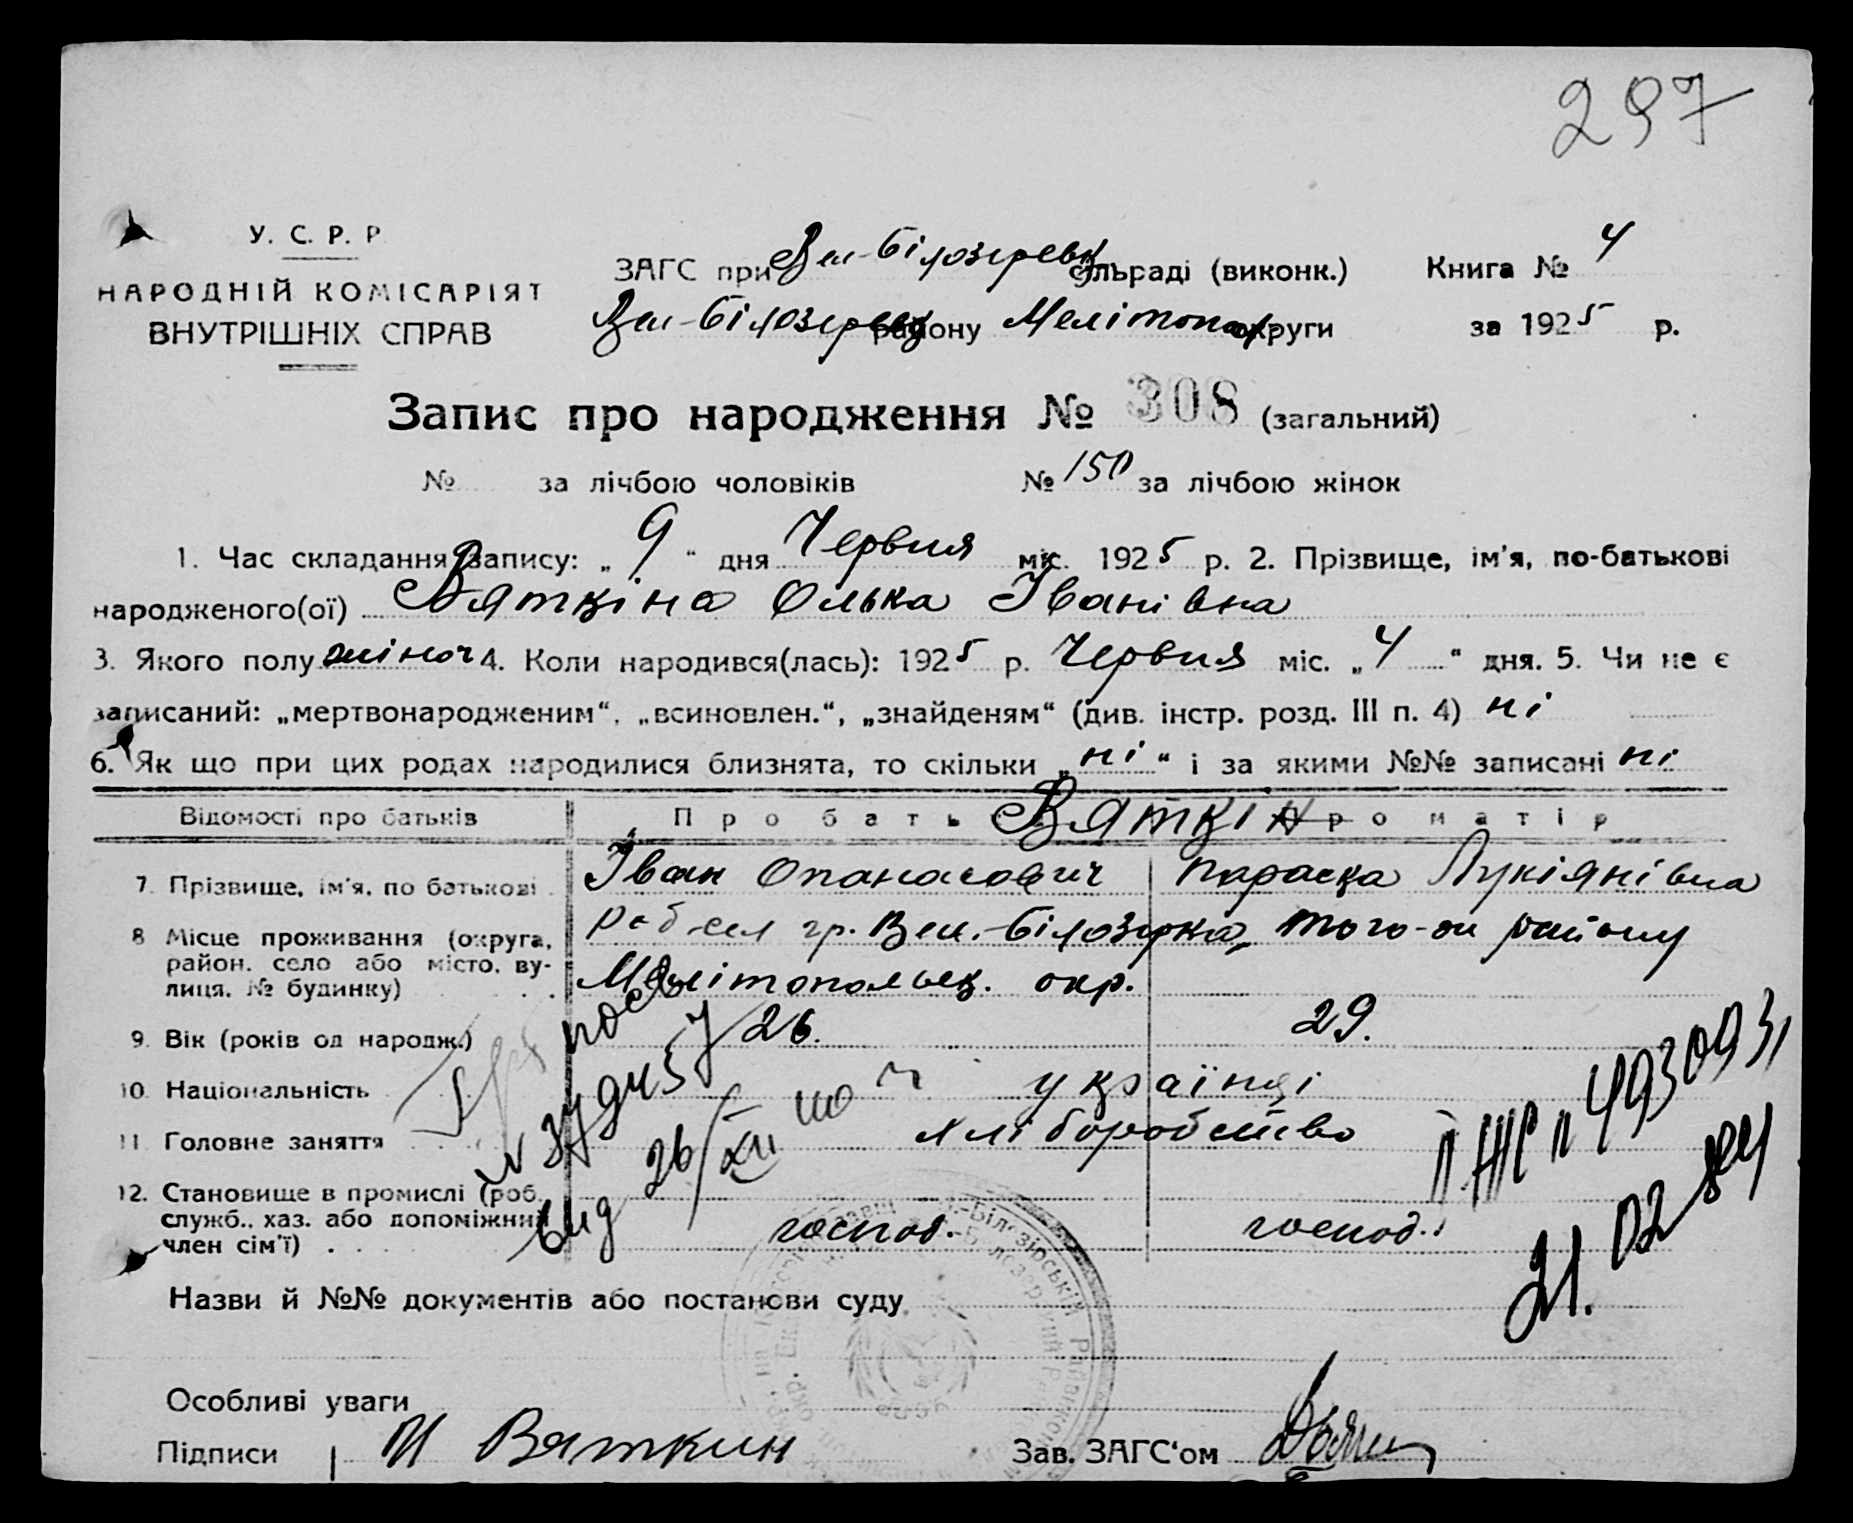 297
У. С. Р. Р
НАРОДНІЙ КОМІСАРІЯТ
ВНУТРІШНІХ СПРАВ
ЗАГС при Вел-Білозерськ сільраді (виконк.) Книга № 4
Вел-Білозерськ району Мелітопол округи за 1925 р.
Запис про народження № 308 (загальний)
№ за лічбою чоловіків № 150 за лічбою жінок
1. Час складання запису: „ 9 “ дня Червня міс. 1925 р. 2. Прізвище, ім'я, по-батькові
народженого(ої) Вяткіна Олька Іванівна
3. Якого полу жіноч 4. Коли народився(лась): 1925 р. Червня міс. „ 4 “ дня. 5. Чи не є
записаний: „мертвонародженим“, „всиновлен.“, „знайденям“ (див. інстр. розд. III п. 4) ні
6. Як що при цих родах народилися близнята, то скільки „ ні “ і за якими №№ записані ні
Відомості про батьків Про батька Вяткін Про матір
7. Прізвище, ім'я, по батькові Іван Опанасович Параска Лукіянівна
8 Місце проживання (округа, район, село або місто, вулиця, № будинку) гр. Вел.-Білозерка, того-ж району
Мелітопольськ. окр.
9. Вік (років од народж.) 26. 29.
10. Національність українці
11 Головне заняття хліборобство
12. Становище в промислі (роб.
служб., хаз. або допоміжний
член сім'ї) господ. господ.
Назви й №№ документів або постанови суду
Особливі уваги
Підписи И Вяткин Зав. ЗАГС'ом
26/XII
21.02